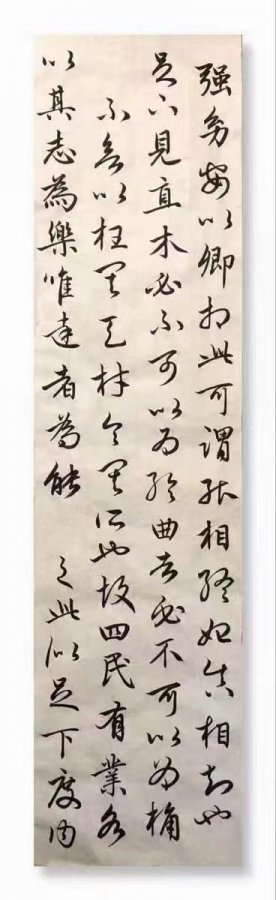 强幼安以卿相此可謂能相終始真相知也
足下見直木必不可以為輪曲者必不可以為桷
不欲以枉其天材令其所也故四民有業各
以其志為樂唯達者為能 之此似足下度内